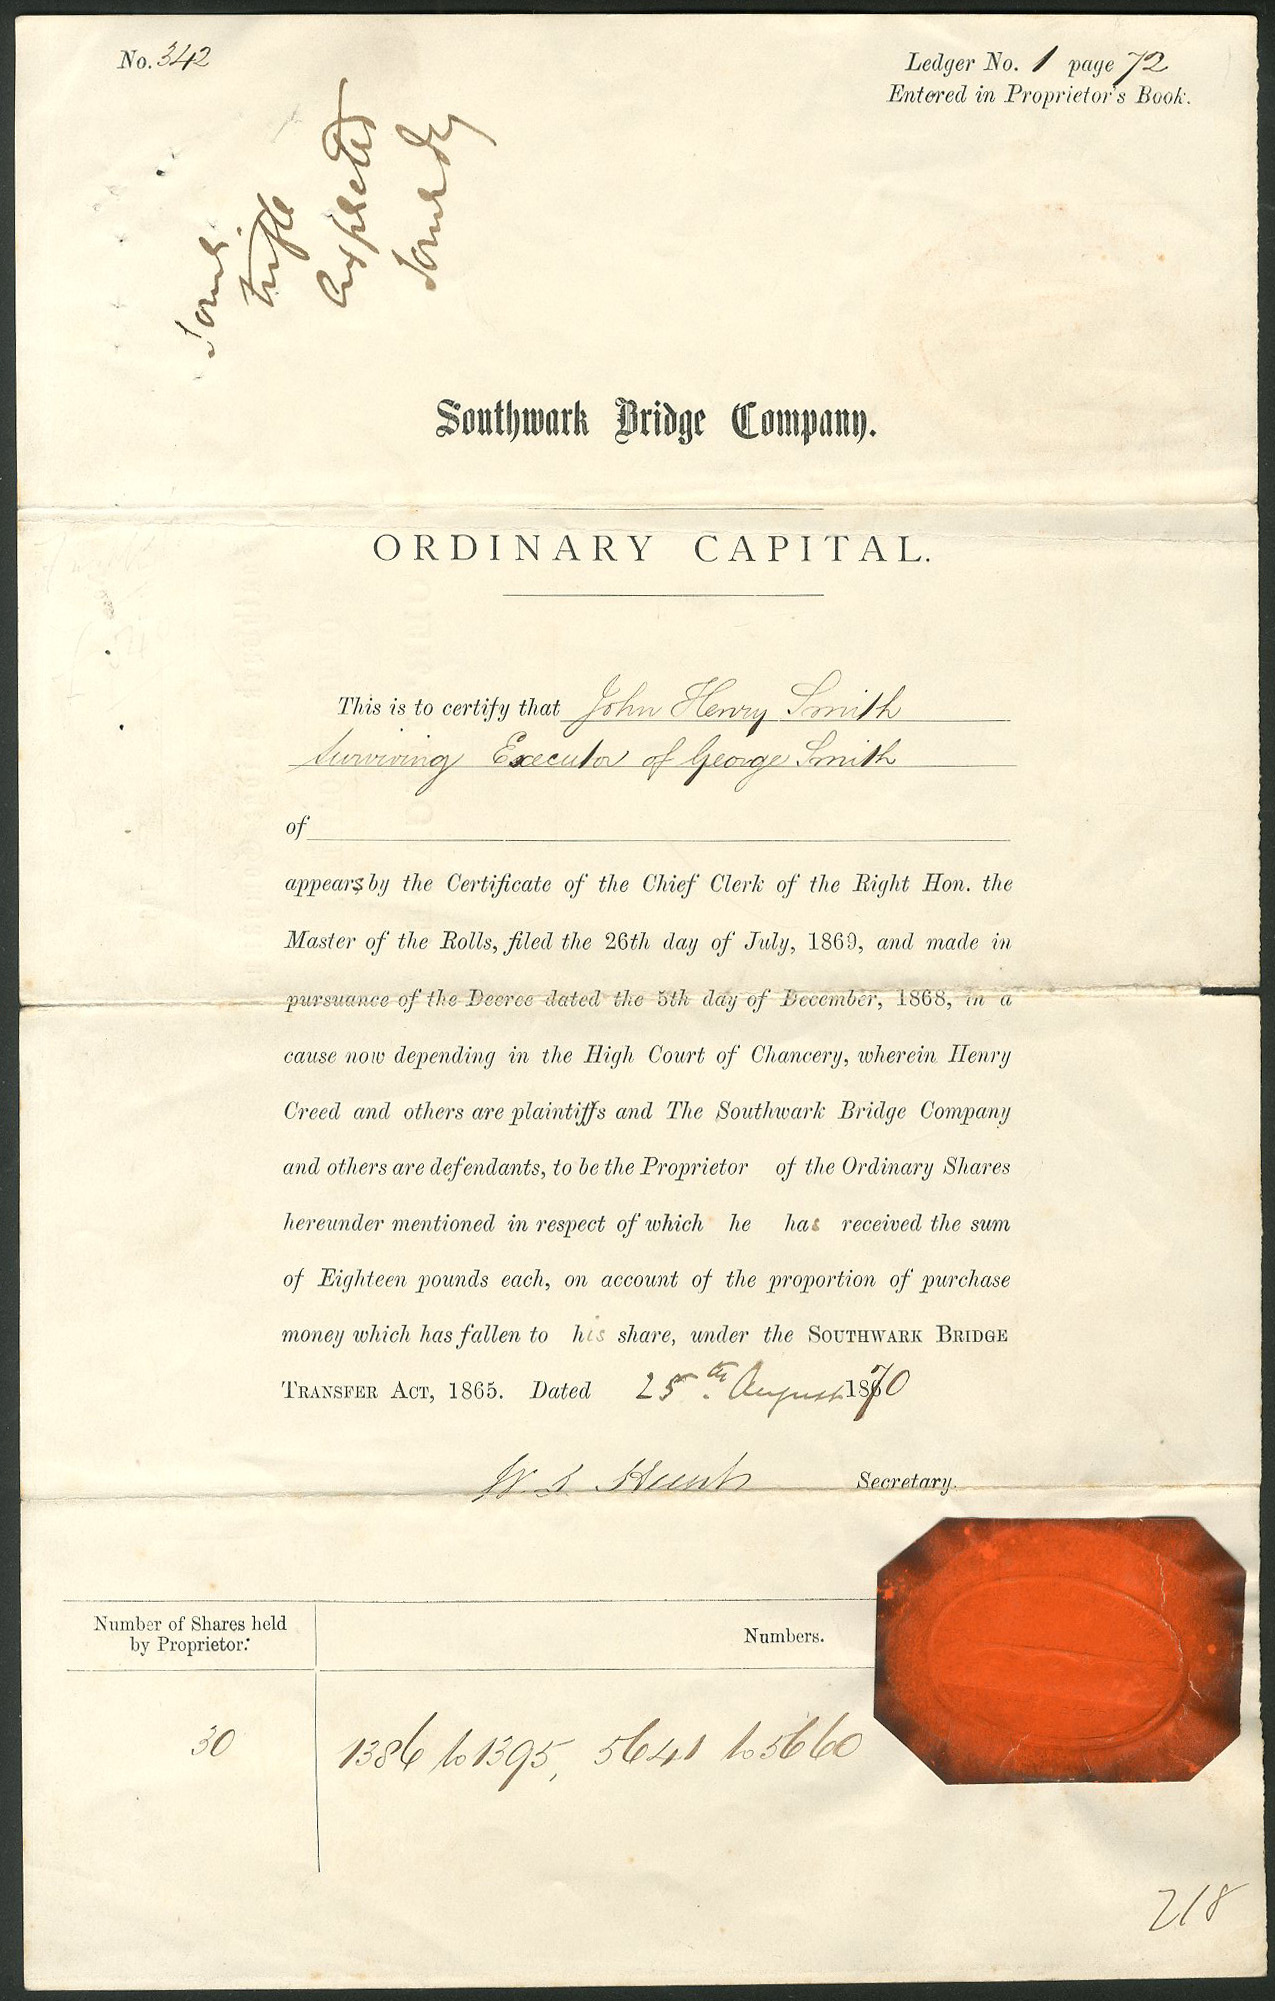 No. 342
Ledger No. 1 page 72
Entered in Proprietor's Book.
Southwark Bridge Company.
ORDINARY CAPITAL.
This is to certify that John Henry Smith
Surviving Executor of George Smith
of
appears by the Certificate of the Chief Clerk of the Right Hon. the
Master of the Rolls, filed the 26th day of July, 1869, and made in
pursuance of the Decree dated the 5th day of December, 1868, in a
cause now depending in the High Court of Chancery, wherein Henry
Creed and others are plaintiffs and The Southwark Bridge Company
and others are defendants, to be the Proprietor of the Ordinary Shares
hereunder mentioned in respect of which he has received the sum
of Eighteen pounds each, on account of the proportion of purchase
money which has fallen to his share, under the SOUTHWARK BRIDGE
TRANSFER ACT, 1865. Dated 25th August 1870
Secretary.
Number of Shares held
by Proprietor.
Numbers.
30
1386 to 1395, 5641 to 5660
218